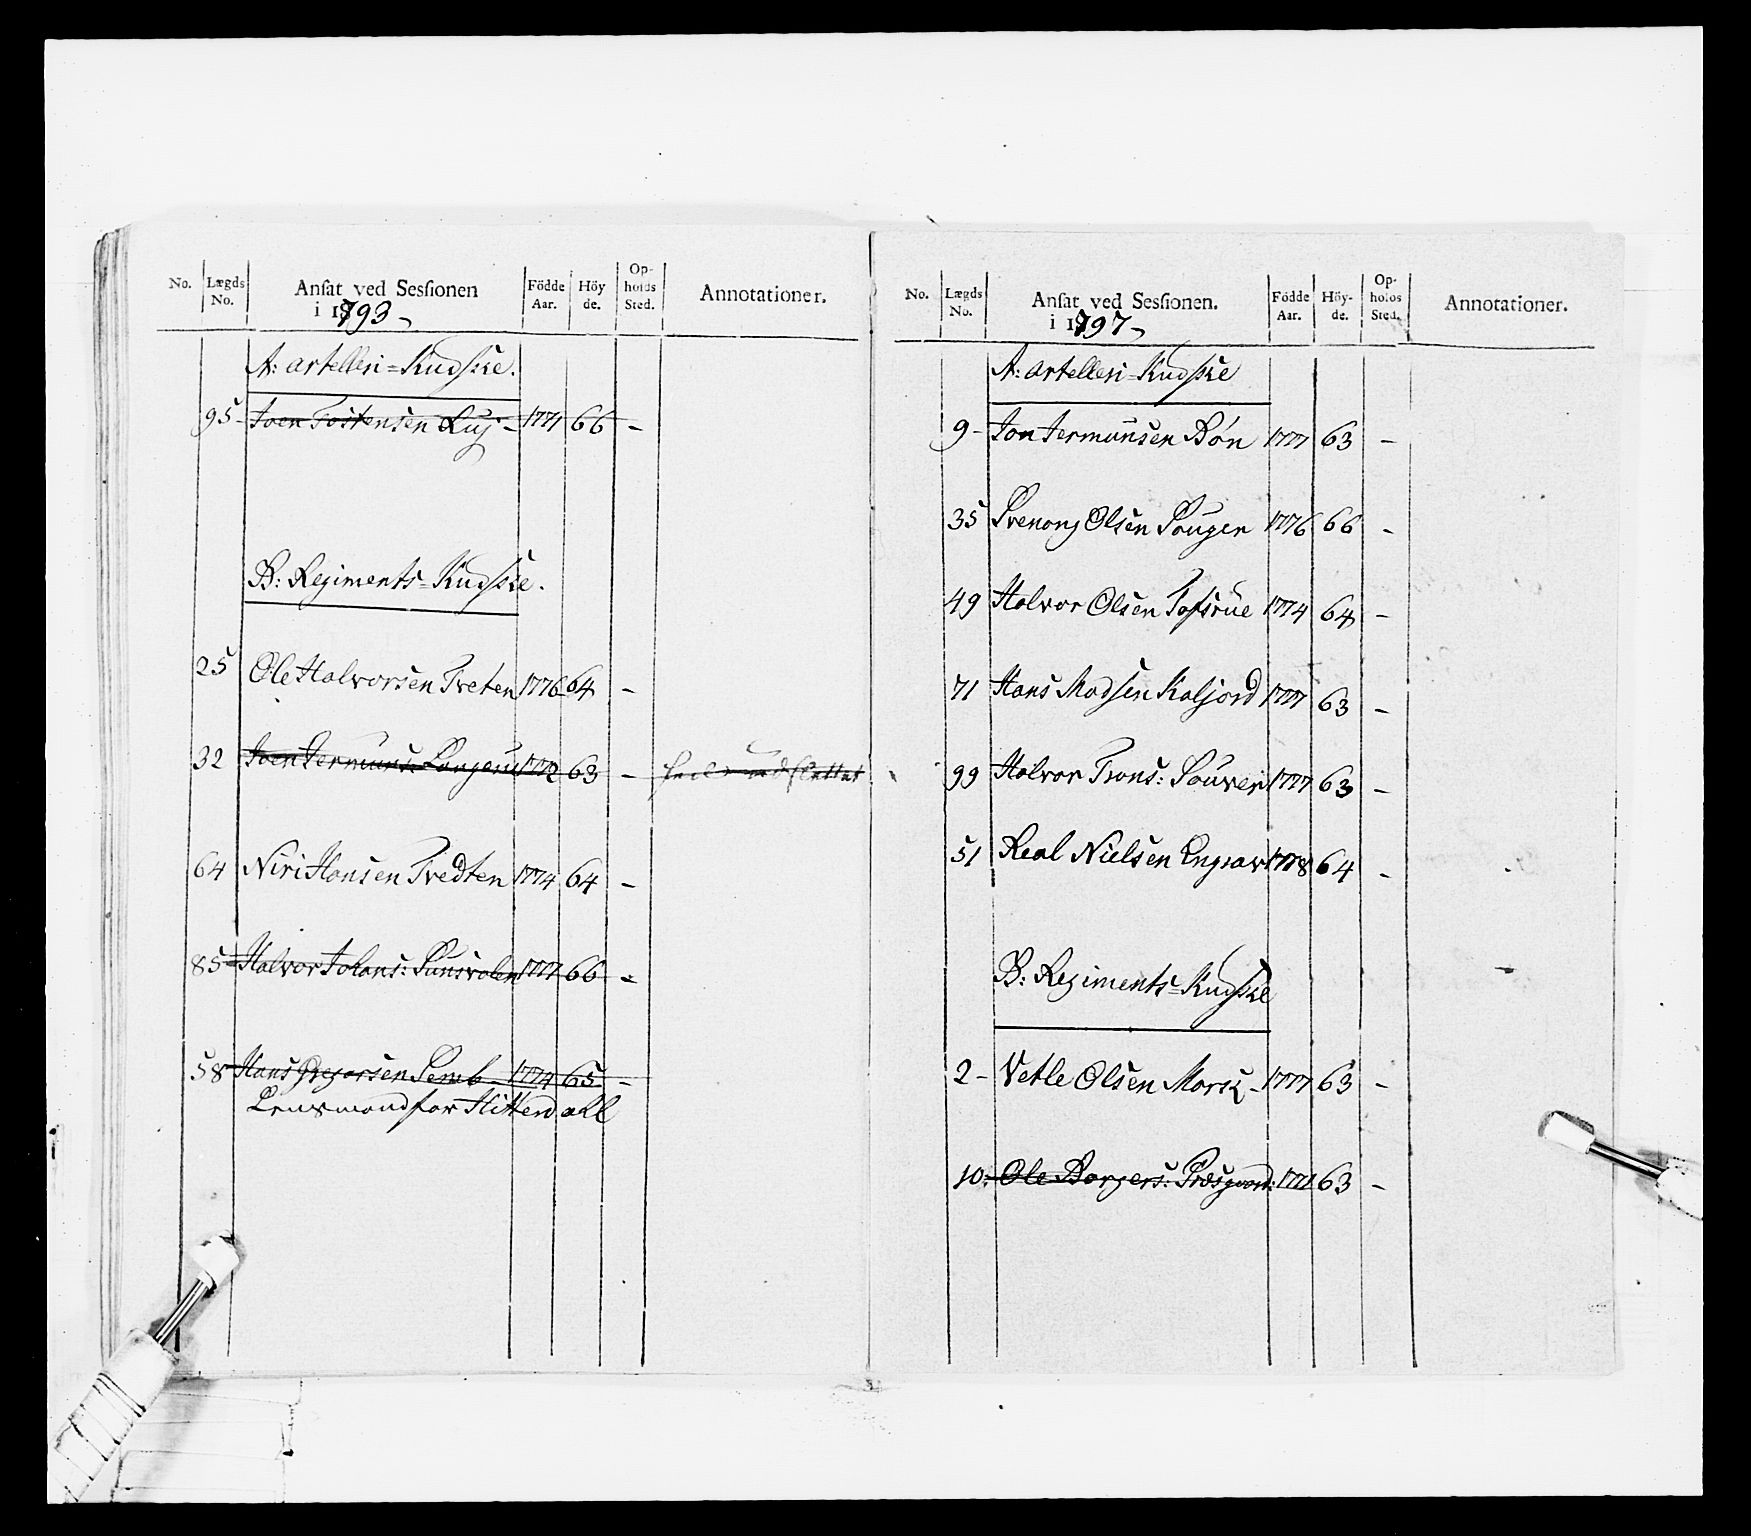 No. Lægds No. Ansat ved Sessionen i 1793 Fødde Aar. Höyde. Opholds Sted. Annotationer.
A: Artelleri=Kudske.
95 - Joen Tostensen Luj - 1771 66 -
B: Regiments=Kudske.
25 Ole Halvorsen Treten 1776 64 -
32 Joen Jermuns: 1772 63 -
64 Niri Hansen Tredten 1774 64 -
85 Halvor Johans: 1777 66 -
58 Hans Gregorsen Semb 1774 65 -
Lensmand for Hitterdahl
No. Lægds No. Ansat ved Sessionen. i 1797 Födde Aar. Höyde. Opholos Sted. Annotationer.
A: Artelleri=Kudske
9 - Jon Jermunsen Bön 1777 63 -
35 Svenong Olsen 1776 66 -
49 Halvor Olsen Tofsrue 1774 64 -
71 Hans Madsen Kasjord 1777 63 -
99 Halvor Trons: 1777 63 -
51 Real Nielsen Engrav 1778 64 -
B: Regiments=Kudske
2 - Vetle Olsen Marsk - 1777 63 -
10: Ole Borgers: Præsgaard: 1771 63 -